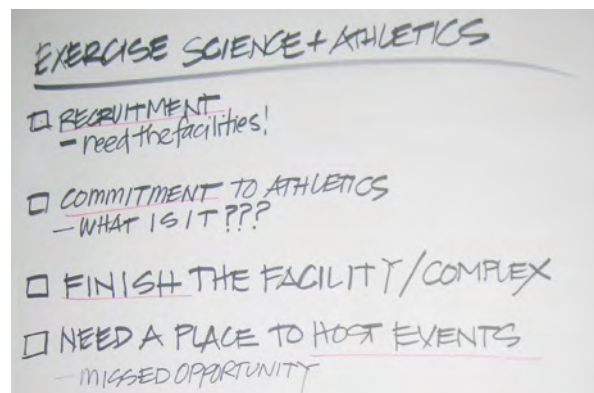 EXERCISE SCIENCE + ATHLETICS
RECRUITMENT
- need the facilities!
COMMITMENT TO ATHLETICS
- WHAT IS IT???
FINISH THE FACILITY/COMPLEX
NEED A PLACE TO HOST EVENTS
- MISSED OPPORTUNITY